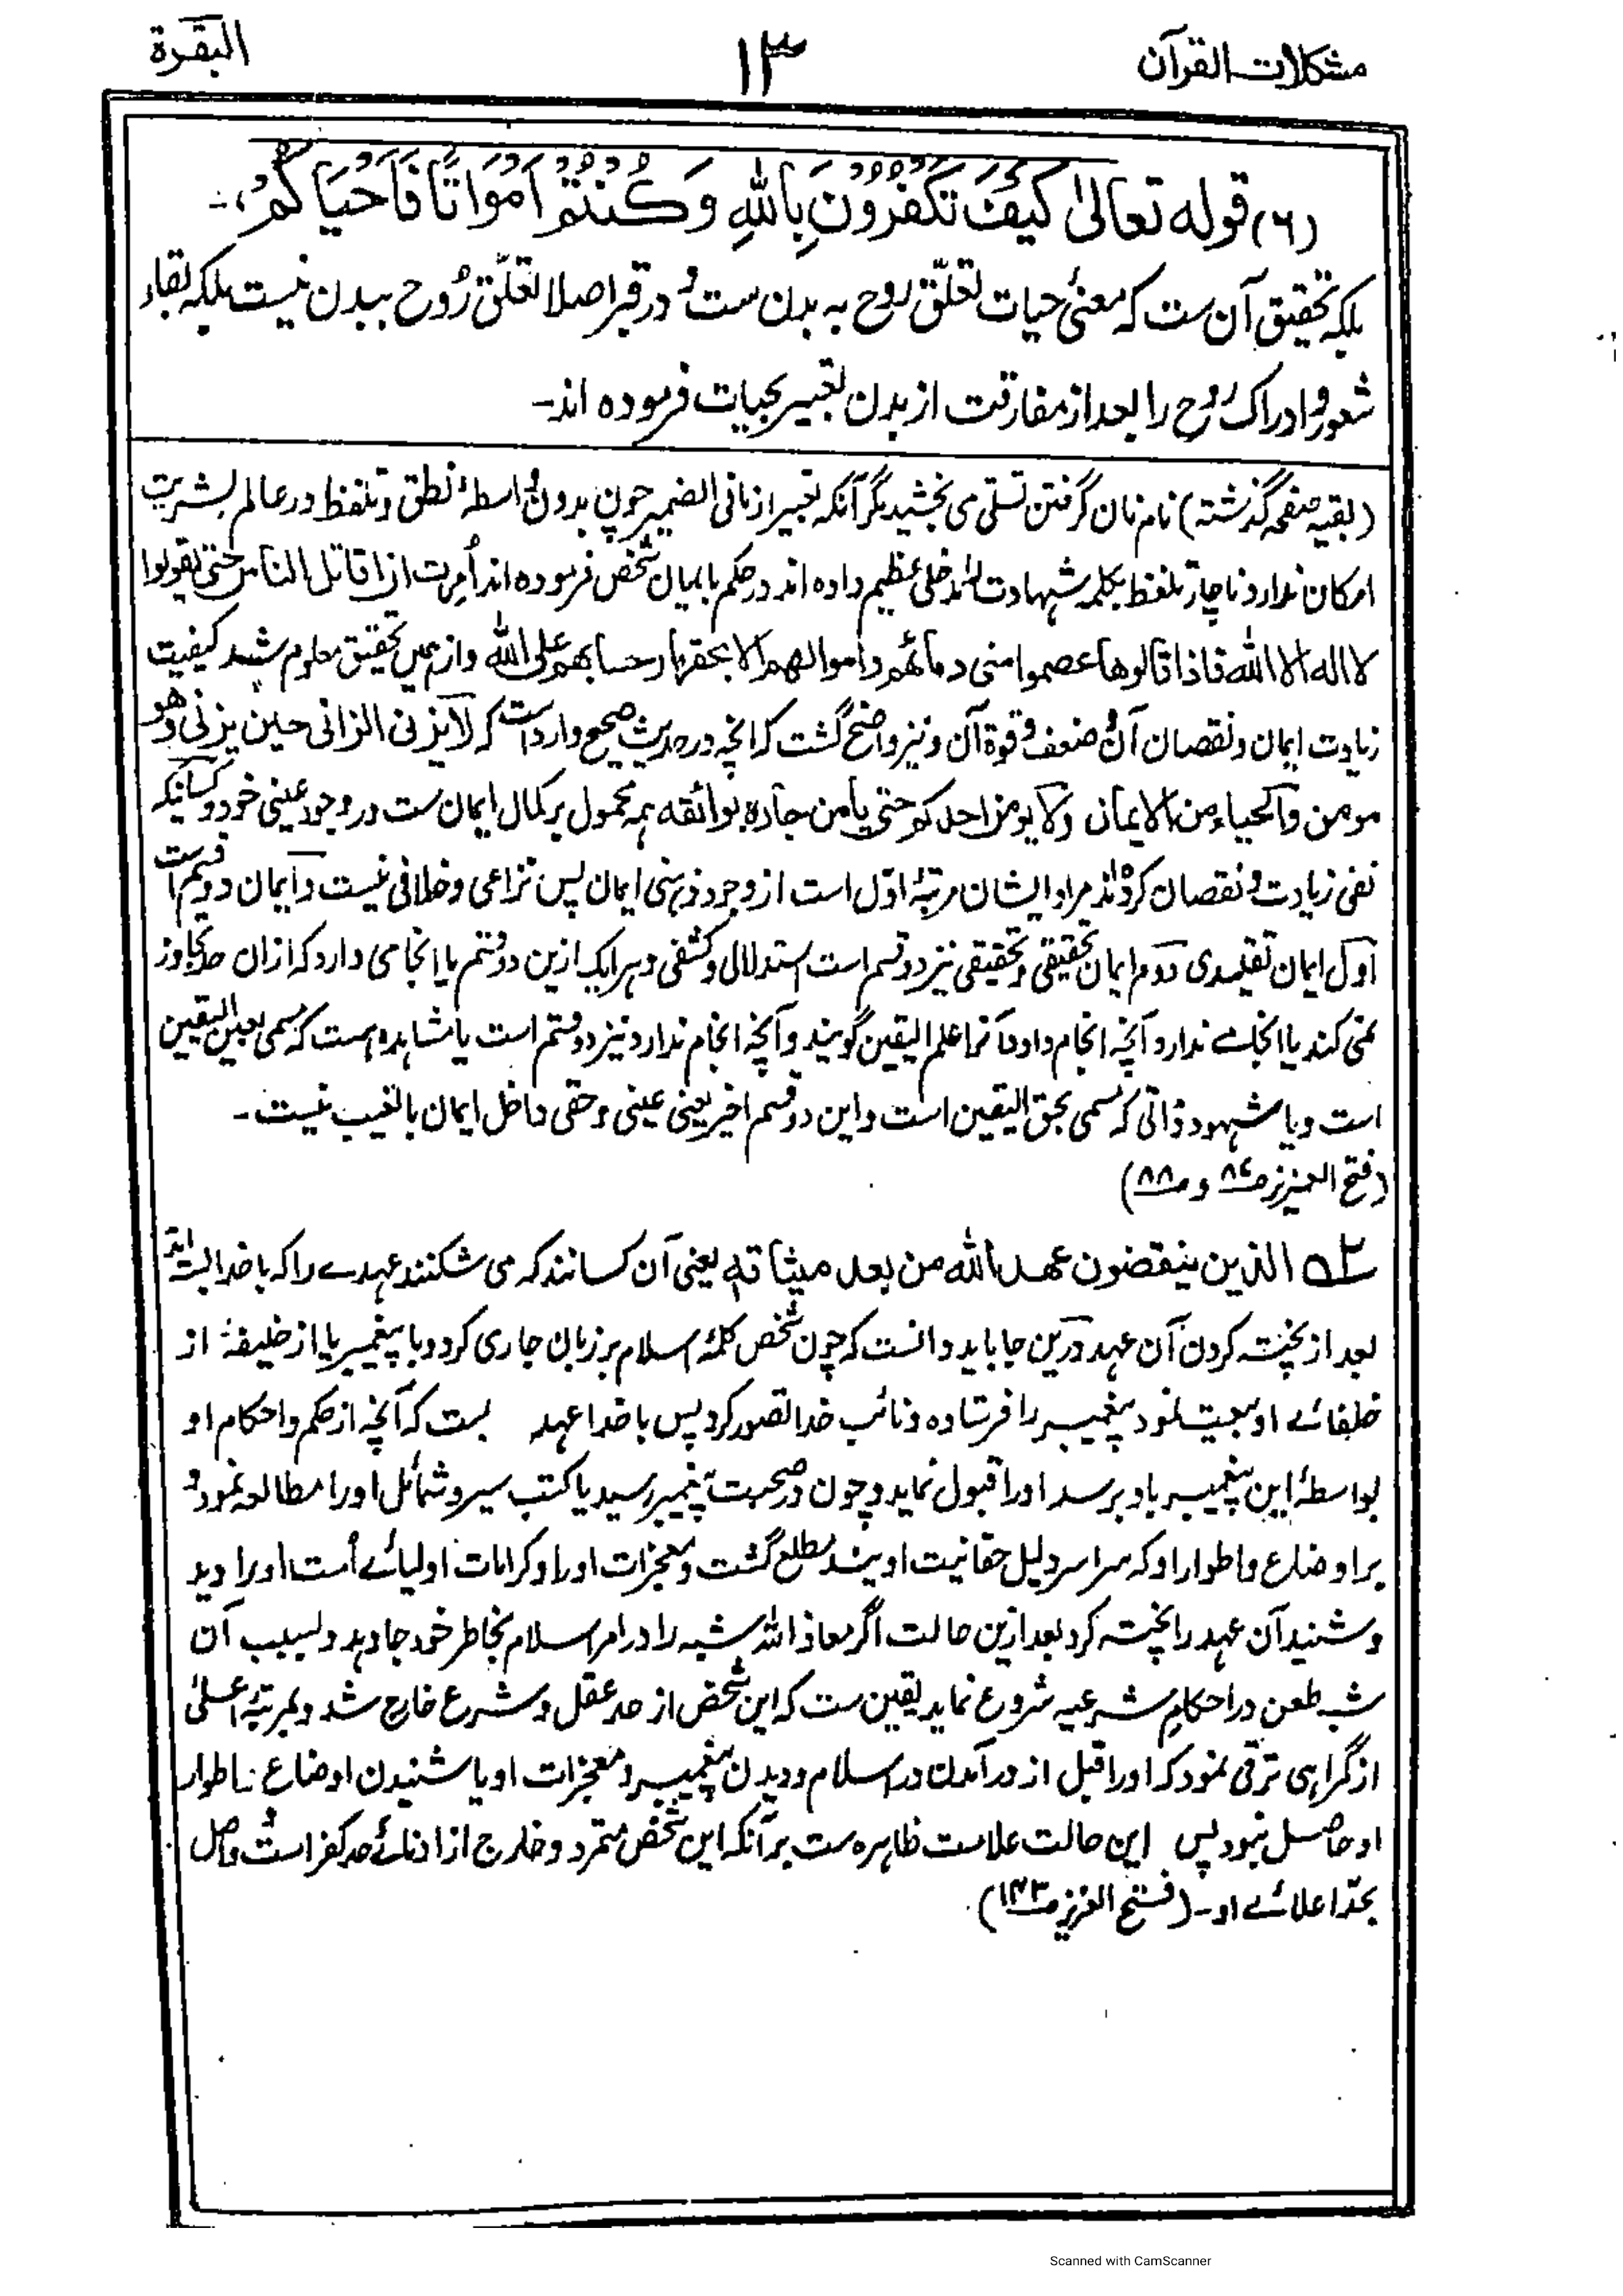 مشکلات القرآن
۱۳
البقرة
(۶) قوله تعالیٰ کَیْفَ تَکْفُرُوْنَ بِاللّٰہِ وَکُنْتُمْ اَمْوَاتًا فَاَحْیَاکُمْ،۔
بلکہ تحقیق آن ست کہ معنیٔ حیات تعلّق روح بہ بدن ست و در قبر اصلا تعلّق رُوح ببدن نیست بلکہ بقاء
شعور و ادراک رُوح را بعد از مفارقت از بدن تعبیر بحیات فرمودہ اند۔
(بقیہ صفحہ گذشتہ) نام نان گرفتن تسلی می بخشید مگر آنکہ تعبیر از مافی الضمیر چون بدون واسطۂ نطق و تلفظ در عالم بشریت
امکان ندارد ناچار تلفظ بکلمہ شہادت را مدخلی عظیم دادہ اند در حکم بایمان شخص فرمودہ اند اُمِرت ان اقاتل الناس حتی یقولوا
لا اله الا الله فاذا قالوها عصموا منی دمائهم و اموالهم الا بحقها و حسابهم علی الله و ازین تحقیق معلوم شد کیفیت
زیادت ایمان و نقصان آن و ضعف و قوة آن و نیز واضح گشت کہ انچہ در حدیث صحیح وارد است کہ لا یزنی الزانی حین یزنی و هو
مومن و الحیاء من الایمان و لا یومن احدکم حتی یامن جاره بوائقه ہمہ محمول بر کمال ایمان ست در وجود عینی خود و کسانیکہ
نفی زیادت و نقصان کردہ اند مراد ایشان مرتبۂ اوّل است از وجود ذہنی ایمان پس نزاعی و خلافی نیست و ایمان دو قسم است
اوّل ایمان تقلیدی دوم ایمان تحقیقی و تحقیقی نیز دو قسم است استدلالی و کشفی و ہر ایک ازین دو قسم یا انجامی دارد کہ ازان حد تجاوز
نمی کند یا انجامے ندارد آنچہ انجام دارد آنرا علم الیقین گویند و آنچہ انجام ندارد نیز دو قسم است یا مشاہدہ است کہ مسمی بعین الیقین
است و یا شہود ذاتی کہ مسمی بحق الیقین است و این دو قسم اخیر یعنی عینی و حقی داخل ایمان بالغیب نیست۔
(فتح العزیز ص۸۶ و ص۸۸)
الذین ینقضون عهد الله من بعد میثاقه یعنی آن کسانند کہ می شکنند عہدے را کہ با خدا بستہ اند
بعد از پختہ کردن آن عہد درین جا باید دانست کہ چون شخص کلمۂ اسلام بر زبان جاری کرد و با پیغمبر یا از خلیفۂ از
خلفائے او بیعت نمود پیغمبر را فرستادہ و نائب خدا تصور کرد پس با خدا عہد بست کہ آنچہ از حکم و احکام او
بواسطۂ این پیغمبر باو برسد اورا قبول نماید و چون در صحبت پیغمبر رسید یا کتب سیر و شمائل اورا مطالعہ نمود و
بر اوضاع و اطوار او کہ سراسر دلیل حقانیت اویند مطلع گشت و معجزات اورا و کرامات اولیائے اُمت اورا دید
و شنید آن عہد را پختہ کرد بعد ازین حالت اگر معاذ الله شبہ را در امر اسلام بخاطر خود جا دہد و بسبب آن
شبہ طعن در احکام شرعیہ شروع نماید یقین ست کہ این شخص از حد عقل و شرع خارج شد و بمرتبۂ اعلیٰ
از گمراہی ترقی نمود کہ اورا قبل از در آمدن در اسلام و دیدن پیغمبر و معجزات او یا شنیدن اوضاع و اطوار
او حاصل نبود پس این حالت علامت ظاہرہ ست بر آنکہ این شخص متمرد و خارج از ادنائے حد کفر است و واصل
بحدّ اعلائے او۔ (فتح العزیز ص۱۴۳)
Scanned with CamScanner